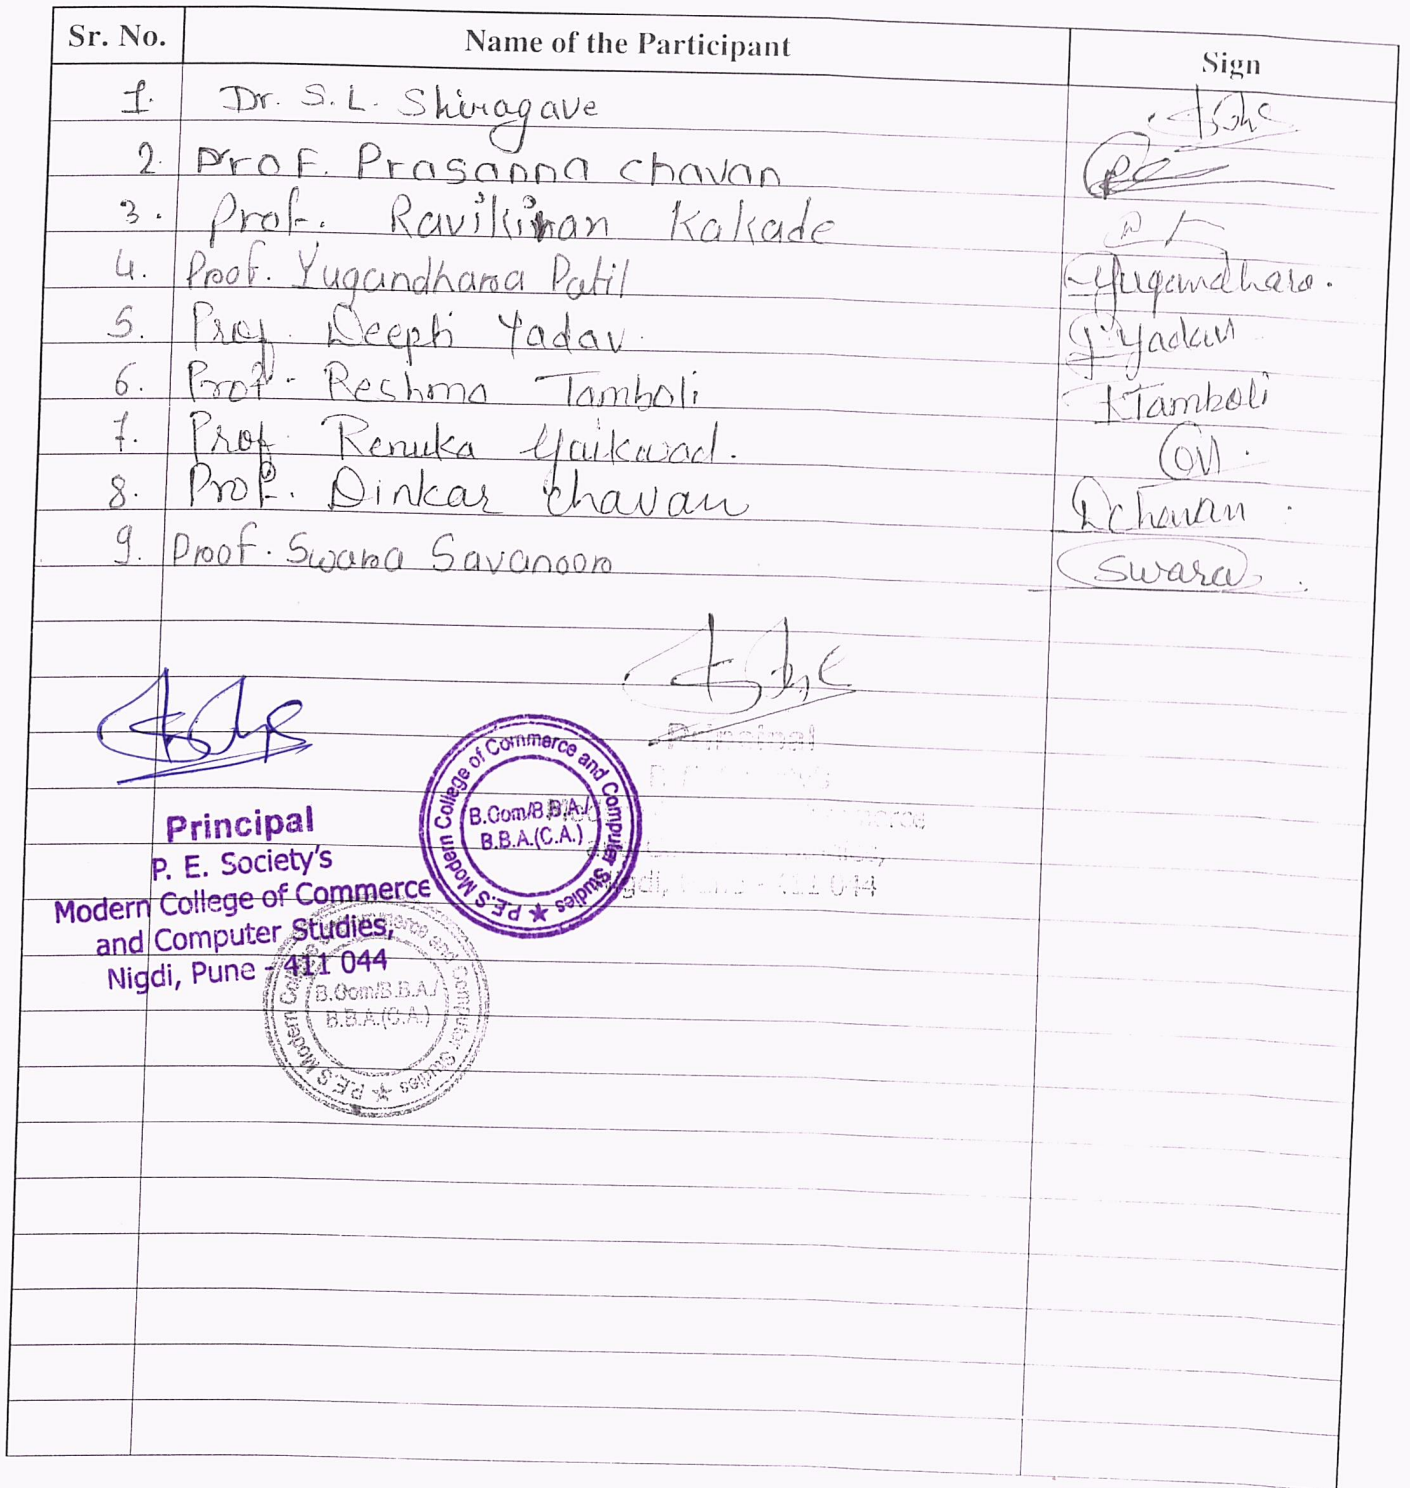 Sr. No. Name of the Participant Sign
1. Dr. S. L. Shiragave
2. Prof. Prasanna Chavan
3. Prof. Ravikiran Kakade
4. Prof. Yugandhara Patil Yugandhara.
5. Prof. Deepti Yadav. Yadav
6. Prof. Reshma Tamboli Tamboli
7. Prof. Renuka Gaikwad.
8. Prof. Dinkar Chavan DChavan
9. Prof. Swara Savanoor Swara
Principal
P. E. Society's
Modern College of Commerce
and Computer Studies,
Nigdi, Pune - 411 044
P.E.S Modern College of Commerce and Computer Studies
B.Com/B.B.A./
B.B.A.(C.A.)
Principal
Nigdi, Pune - 411 044
P.E.S Modern College of Commerce and Computer Studies
B.Com/B.B.A./
B.B.A.(C.A.)